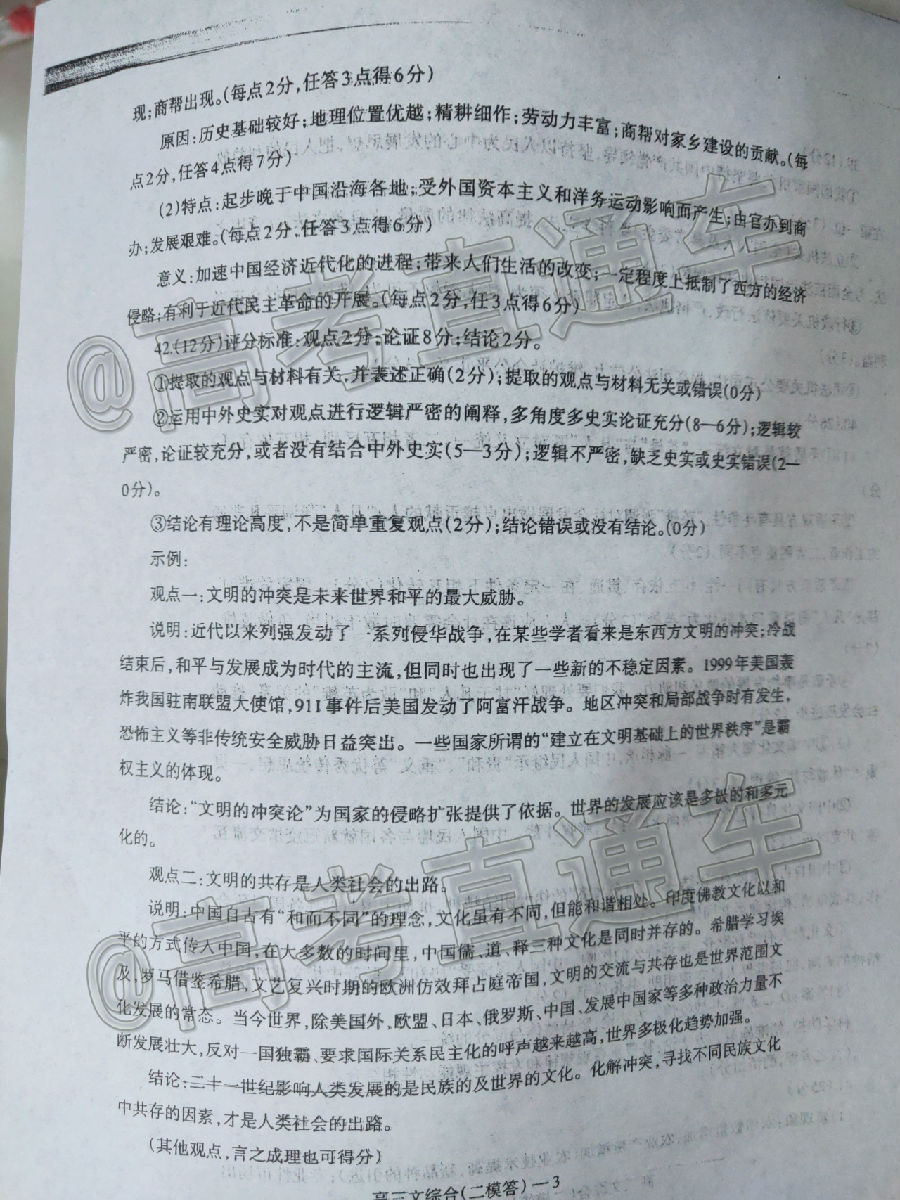 现;商帮出现。(每点2分,任答3点得6分)
原因:历史基础较好;地理位置优越;精耕细作;劳动力丰富;商帮对家乡建设的贡献。(每
点2分,任答4点得7分)
(2)特点:起步晚于中国沿海各地;受外国资本主义和洋务运动影响而产生;由官办到商
办;发展艰难。(每点2分,任答3点得6分)
意义:加速中国经济近代化的进程;带来人们生活的改变;一定程度上抵制了西方的经济
侵略;有利于近代民主革命的开展。(每点2分,任3点得6分)
42.(12分)评分标准:观点2分;论证8分;结论2分。
①提取的观点与材料有关,并表述正确(2分);提取的观点与材料无关或错误(0分)
②运用中外史实对观点进行逻辑严密的阐释,多角度多史实论证充分(8—6分);逻辑较
严密,论证较充分,或者没有结合中外史实(5—3分);逻辑不严密,缺乏史实或史实错误(2—
0分)。
③结论有理论高度,不是简单重复观点(2分);结论错误或没有结论。(0分)
示例:
观点一:文明的冲突是未来世界和平的最大威胁。
说明:近代以来列强发动了一系列侵华战争,在某些学者看来是东西方文明的冲突;冷战
结束后,和平与发展成为时代的主流,但同时也出现了一些新的不稳定因素。1999年美国轰
炸我国驻南联盟大使馆,911事件后美国发动了阿富汗战争。地区冲突和局部战争时有发生,
恐怖主义等非传统安全威胁日益突出。一些国家所谓的“建立在文明基础上的世界秩序”是霸
权主义的体现。
结论:“文明的冲突论”为国家的侵略扩张提供了依据。世界的发展应该是多极的和多元
化的。
观点二:文明的共存是人类社会的出路。
说明:中国自古有“和而不同”的理念,文化虽有不同,但能和谐相处。印度佛教文化以和
平的方式传入中国,在大多数的时间里,中国儒、道、释三种文化是同时并存的。希腊学习埃
及,罗马借鉴希腊,文艺复兴时期的欧洲仿效拜占庭帝国,文明的交流与共存也是世界范围文
化发展的常态。当今世界,除美国外、欧盟、日本、俄罗斯、中国、发展中国家等多种政治力量不
断发展壮大,反对一国独霸、要求国际关系民主化的呼声越来越高,世界多极化趋势加强。
结论:二十一世纪影响人类发展的是民族的及世界的文化。化解冲突,寻找不同民族文化
中共存的因素,才是人类社会的出路。
(其他观点,言之成理也可得分)
高三文综合(二模答)—3
@高考直通车
@高考直通车